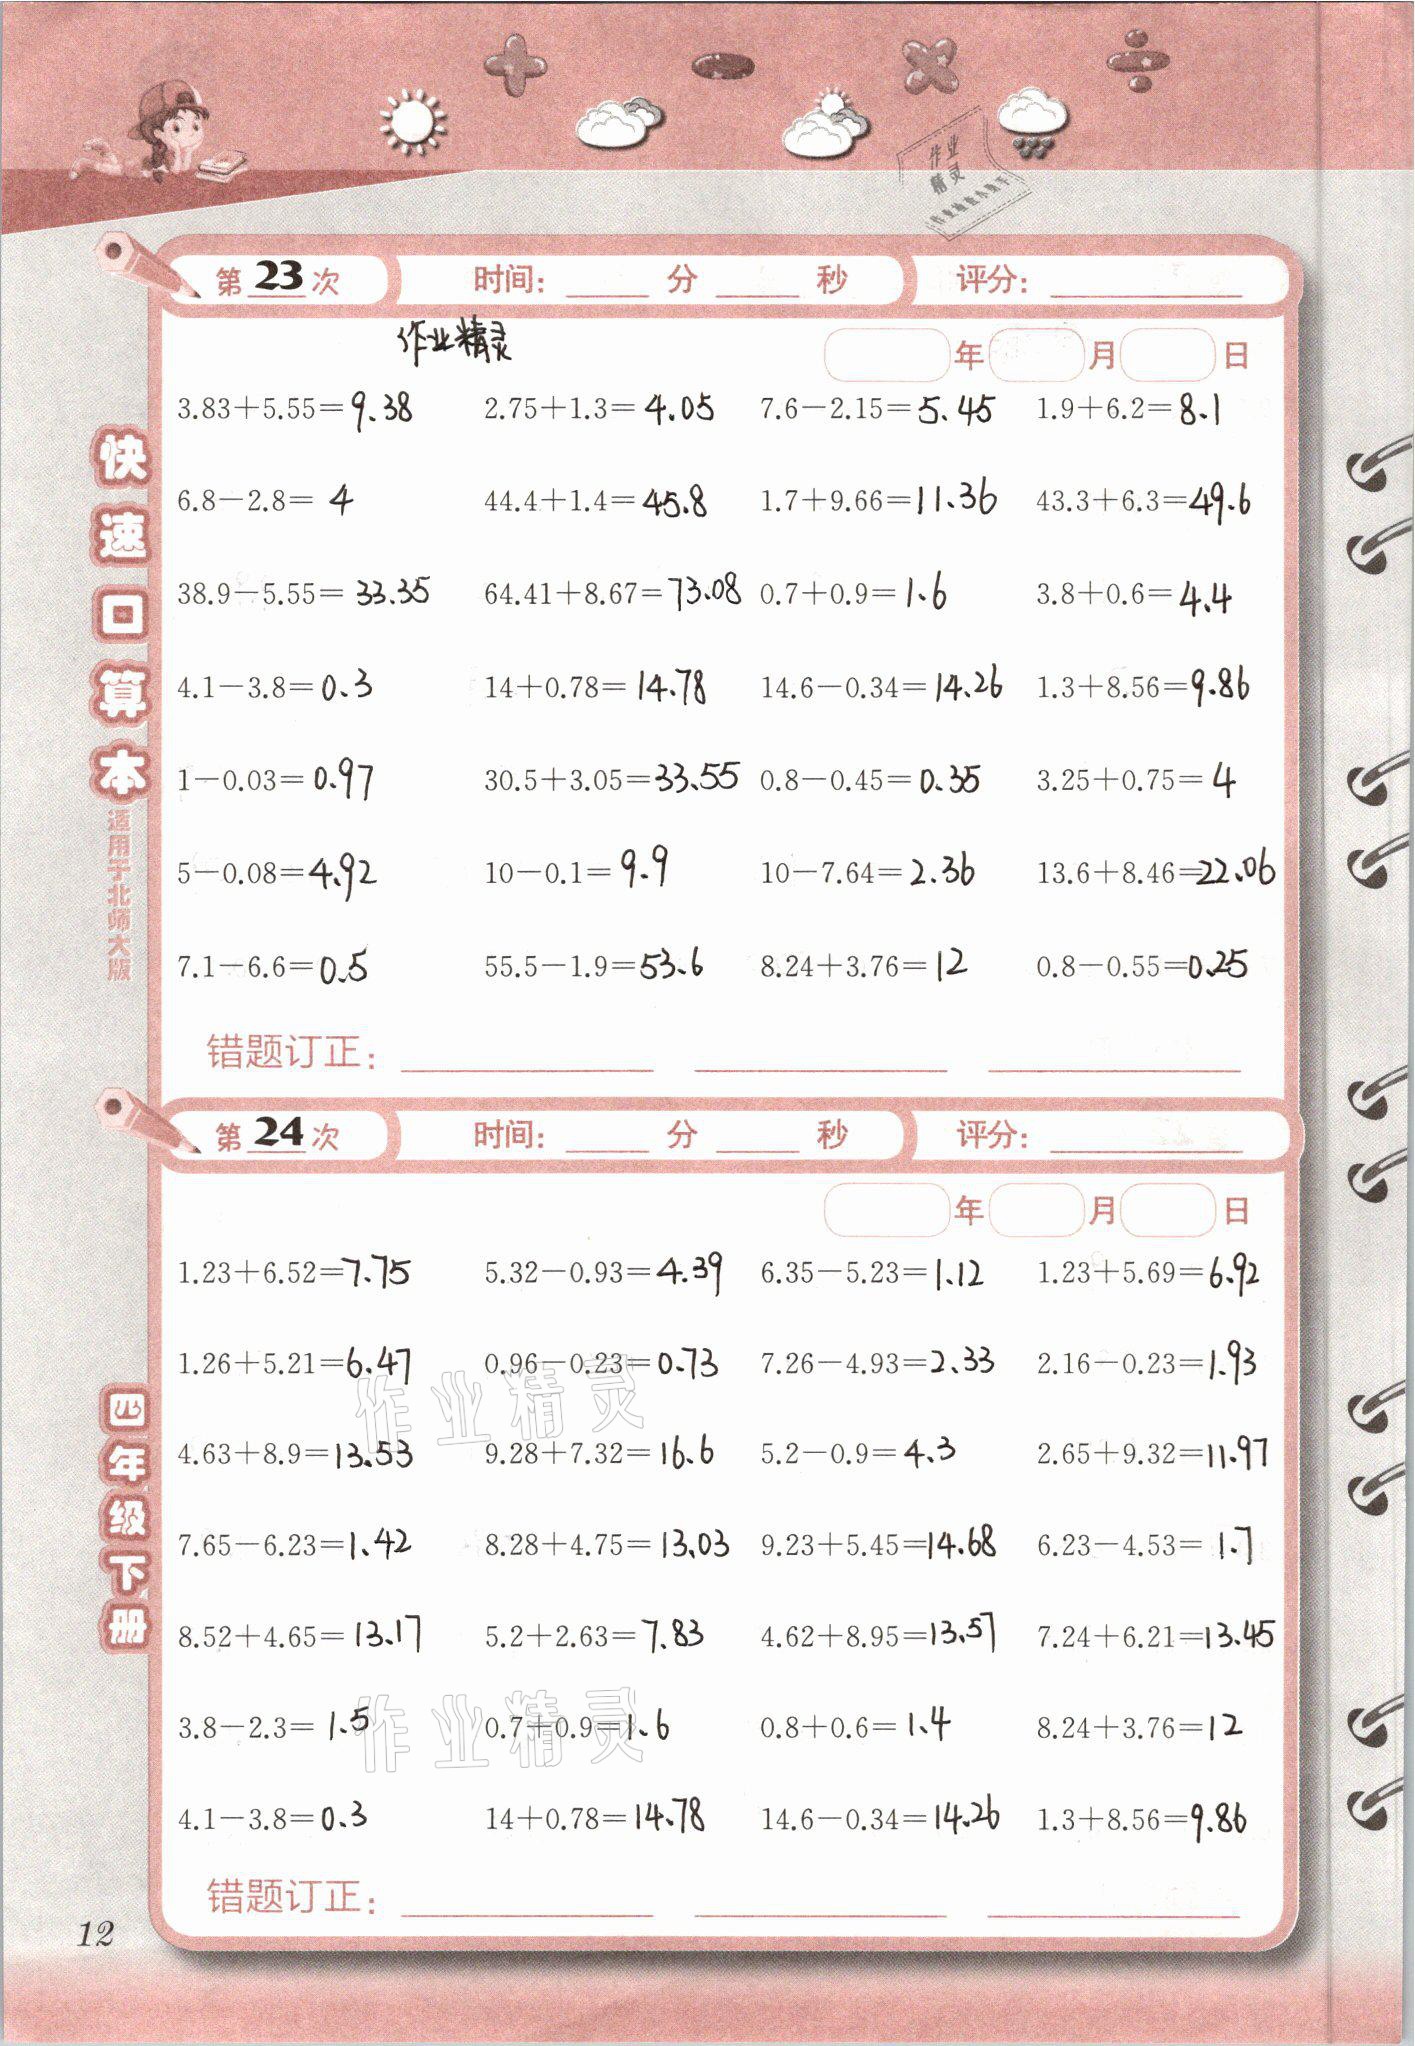 作业
精灵
第23次 时间：____分____秒 评分：____
作业精灵
年 月 日
3.83+5.55=9.38 2.75+1.3=4.05 7.6-2.15=5.45 1.9+6.2=8.1
6.8-2.8=4 44.4+1.4=45.8 1.7+9.66=11.36 43.3+6.3=49.6
38.9-5.55=33.35 64.41+8.67=73.08 0.7+0.9=1.6 3.8+0.6=4.4
4.1-3.8=0.3 14+0.78=14.78 14.6-0.34=14.26 1.3+8.56=9.86
1-0.03=0.97 30.5+3.05=33.55 0.8-0.45=0.35 3.25+0.75=4
5-0.08=4.92 10-0.1=9.9 10-7.64=2.36 13.6+8.46=22.06
7.1-6.6=0.5 55.5-1.9=53.6 8.24+3.76=12 0.8-0.55=0.25
错题订正：
第24次 时间：____分____秒 评分：____
年 月 日
1.23+6.52=7.75 5.32-0.93=4.39 6.35-5.23=1.12 1.23+5.69=6.92
1.26+5.21=6.47 0.96-0.23=0.73 7.26-4.93=2.33 2.16-0.23=1.93
作业精灵
4.63+8.9=13.53 9.28+7.32=16.6 5.2-0.9=4.3 2.65+9.32=11.97
7.65-6.23=1.42 8.28+4.75=13.03 9.23+5.45=14.68 6.23-4.53=1.7
8.52+4.65=13.17 5.2+2.63=7.83 4.62+8.95=13.57 7.24+6.21=13.45
3.8-2.3=1.5 0.7+0.9=1.6 0.8+0.6=1.4 8.24+3.76=12
作业精灵
4.1-3.8=0.3 14+0.78=14.78 14.6-0.34=14.26 1.3+8.56=9.86
错题订正：
快速口算本
适用于北师大版
四年级下册
12